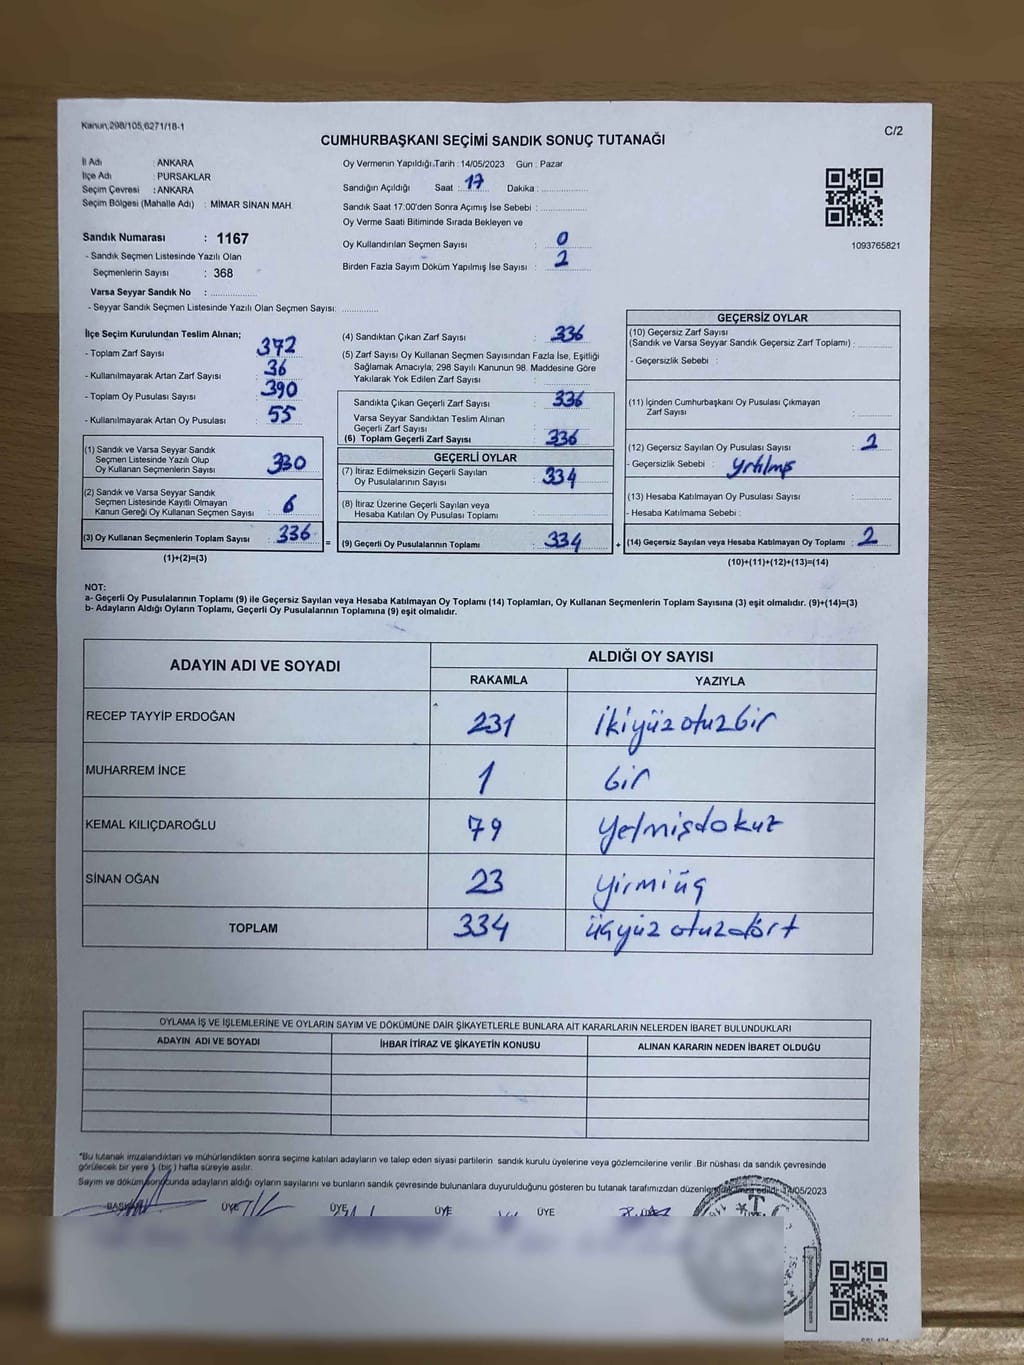 Kanun,298/105,6271/18-1
C/2
CUMHURBAŞKANI SEÇİMİ SANDIK SONUÇ TUTANAĞI
İl Adı : ANKARA
İlçe Adı : PURSAKLAR
Seçim Çevresi : ANKARA
Seçim Bölgesi (Mahalle Adı) : MİMAR SİNAN MAH.
Sandık Numarası : 1167
- Sandık Seçmen Listesinde Yazılı Olan
Seçmenlerin Sayısı : 368
Varsa Seyyar Sandık No :
- Seyyar Sandık Seçmen Listesinde Yazılı Olan Seçmen Sayısı:
Oy Vermenin Yapıldığı Tarih : 14/05/2023 Gün : Pazar
Sandığın Açıldığı Saat : 17 Dakika :
Sandık Saat 17:00'den Sonra Açımış İse Sebebi :
Oy Verme Saati Bitiminde Sırada Bekleyen ve
Oy Kullandırılan Seçmen Sayısı : 0
Birden Fazla Sayım Döküm Yapılmış İse Sayısı : 2
1093765821
İlçe Seçim Kurulundan Teslim Alınan;
- Toplam Zarf Sayısı : 372
- Kullanılmayarak Artan Zarf Sayısı : 36
- Toplam Oy Pusulası Sayısı : 390
- Kullanılmayarak Artan Oy Pusulası : 55
(1) Sandık ve Varsa Seyyar Sandık
Seçmen Listesinde Yazılı Olup
Oy Kullanan Seçmenlerin Sayısı : 330
(2) Sandık ve Varsa Seyyar Sandık
Seçmen Listesinde Kayıtlı Olmayan
Kanun Gereği Oy Kullanan Seçmen Sayısı : 6
(3) Oy Kullanan Seçmenlerin Toplam Sayısı : 336
(1)+(2)=(3)
=
(4) Sandıktan Çıkan Zarf Sayısı : 336
(5) Zarf Sayısı Oy Kullanan Seçmen Sayısından Fazla İse, Eşitliği
Sağlamak Amacıyla; 298 Sayılı Kanunun 98. Maddesine Göre
Yakılarak Yok Edilen Zarf Sayısı :
Sandıkta Çıkan Geçerli Zarf Sayısı : 336
Varsa Seyyar Sandıktan Teslim Alınan
Geçerli Zarf Sayısı :
(6) Toplam Geçerli Zarf Sayısı : 336
GEÇERLİ OYLAR
(7) İtiraz Edilmeksizin Geçerli Sayılan
Oy Pusulalarının Sayısı : 334
(8) İtiraz Üzerine Geçerli Sayılan veya
Hesaba Katılan Oy Pusulası Toplamı :
(9) Geçerli Oy Pusulalarının Toplamı : 334
+
GEÇERSİZ OYLAR
(10) Geçersiz Zarf Sayısı
(Sandık ve Varsa Seyyar Sandık Geçersiz Zarf Toplamı) :
- Geçersizlik Sebebi :
(11) İçinden Cumhurbaşkanı Oy Pusulası Çıkmayan
Zarf Sayısı :
(12) Geçersiz Sayılan Oy Pusulası Sayısı : 2
- Geçersizlik Sebebi : yırtılmış
(13) Hesaba Katılmayan Oy Pusulası Sayısı :
- Hesaba Katılmama Sebebi :
(14) Geçersiz Sayılan veya Hesaba Katılmayan Oy Toplamı : 2
(10)+(11)+(12)+(13)=(14)
NOT:
a- Geçerli Oy Pusulalarının Toplamı (9) ile Geçersiz Sayılan veya Hesaba Katılmayan Oy Toplamı (14) Toplamları, Oy Kullanan Seçmenlerin Toplam Sayısına (3) eşit olmalıdır. (9)+(14)=(3)
b- Adayların Aldığı Oyların Toplamı, Geçerli Oy Pusulalarının Toplamına (9) eşit olmalıdır.
ADAYIN ADI VE SOYADI ALDIĞI OY SAYISI
RAKAMLA YAZIYLA
RECEP TAYYİP ERDOĞAN 231 ikiyüz otuzbir
MUHARREM İNCE 1 bir
KEMAL KILIÇDAROĞLU 79 yetmişdokuz
SİNAN OĞAN 23 yirmiüç
TOPLAM 334 üçyüz otuzdört
OYLAMA İŞ VE İŞLEMLERİNE VE OYLARIN SAYIM VE DÖKÜMÜNE DAİR ŞİKAYETLERLE BUNLARA AİT KARARLARIN NELERDEN İBARET BULUNDUKLARI
ADAYIN ADI VE SOYADI İHBAR İTİRAZ VE ŞİKAYETİN KONUSU ALINAN KARARIN NEDEN İBARET OLDUĞU
*Bu tutanak imzalandıktan ve mühürlendikten sonra seçime katılan adayların ve talep eden siyasi partilerin sandık kurulu üyelerine veya gözlemcilerine verilir .Bir nüshası da sandık çevresinde
görülecek bir yere 1 (bir) hafta süreyle asılır.
Sayım ve döküm sonucunda adayların aldığı oyların sayılarını ve bunların sandık çevresinde bulunanlara duyurulduğunu gösteren bu tutanak tarafımızdan düzenlenerek imza edildi. 14/05/2023
BAŞKAN ÜYE ÜYE ÜYE ÜYE
T.C.